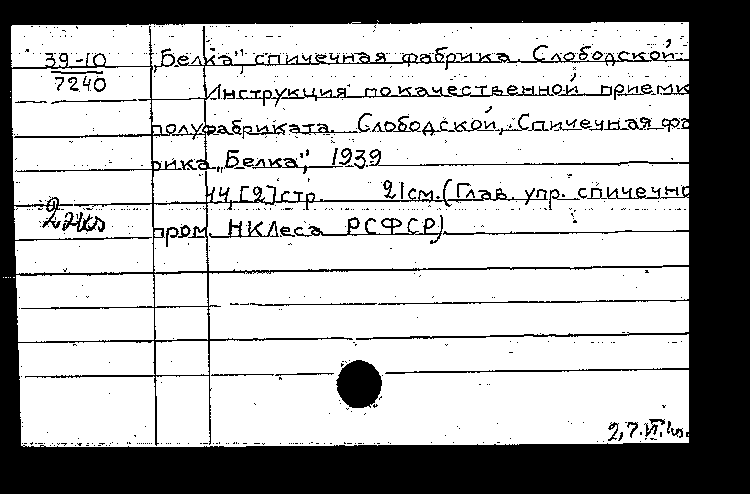 39-10
7240
„Белка", спичечная фабрика. Слободской.
Инструкция по качественной приемк
полуфабриката. Слободской, Спичечная фа
рика „Белка", 1939
44,[2]стр. 21см.(Глав. упр. спичечно
пром. НКЛеса РСФСР).
2 экз